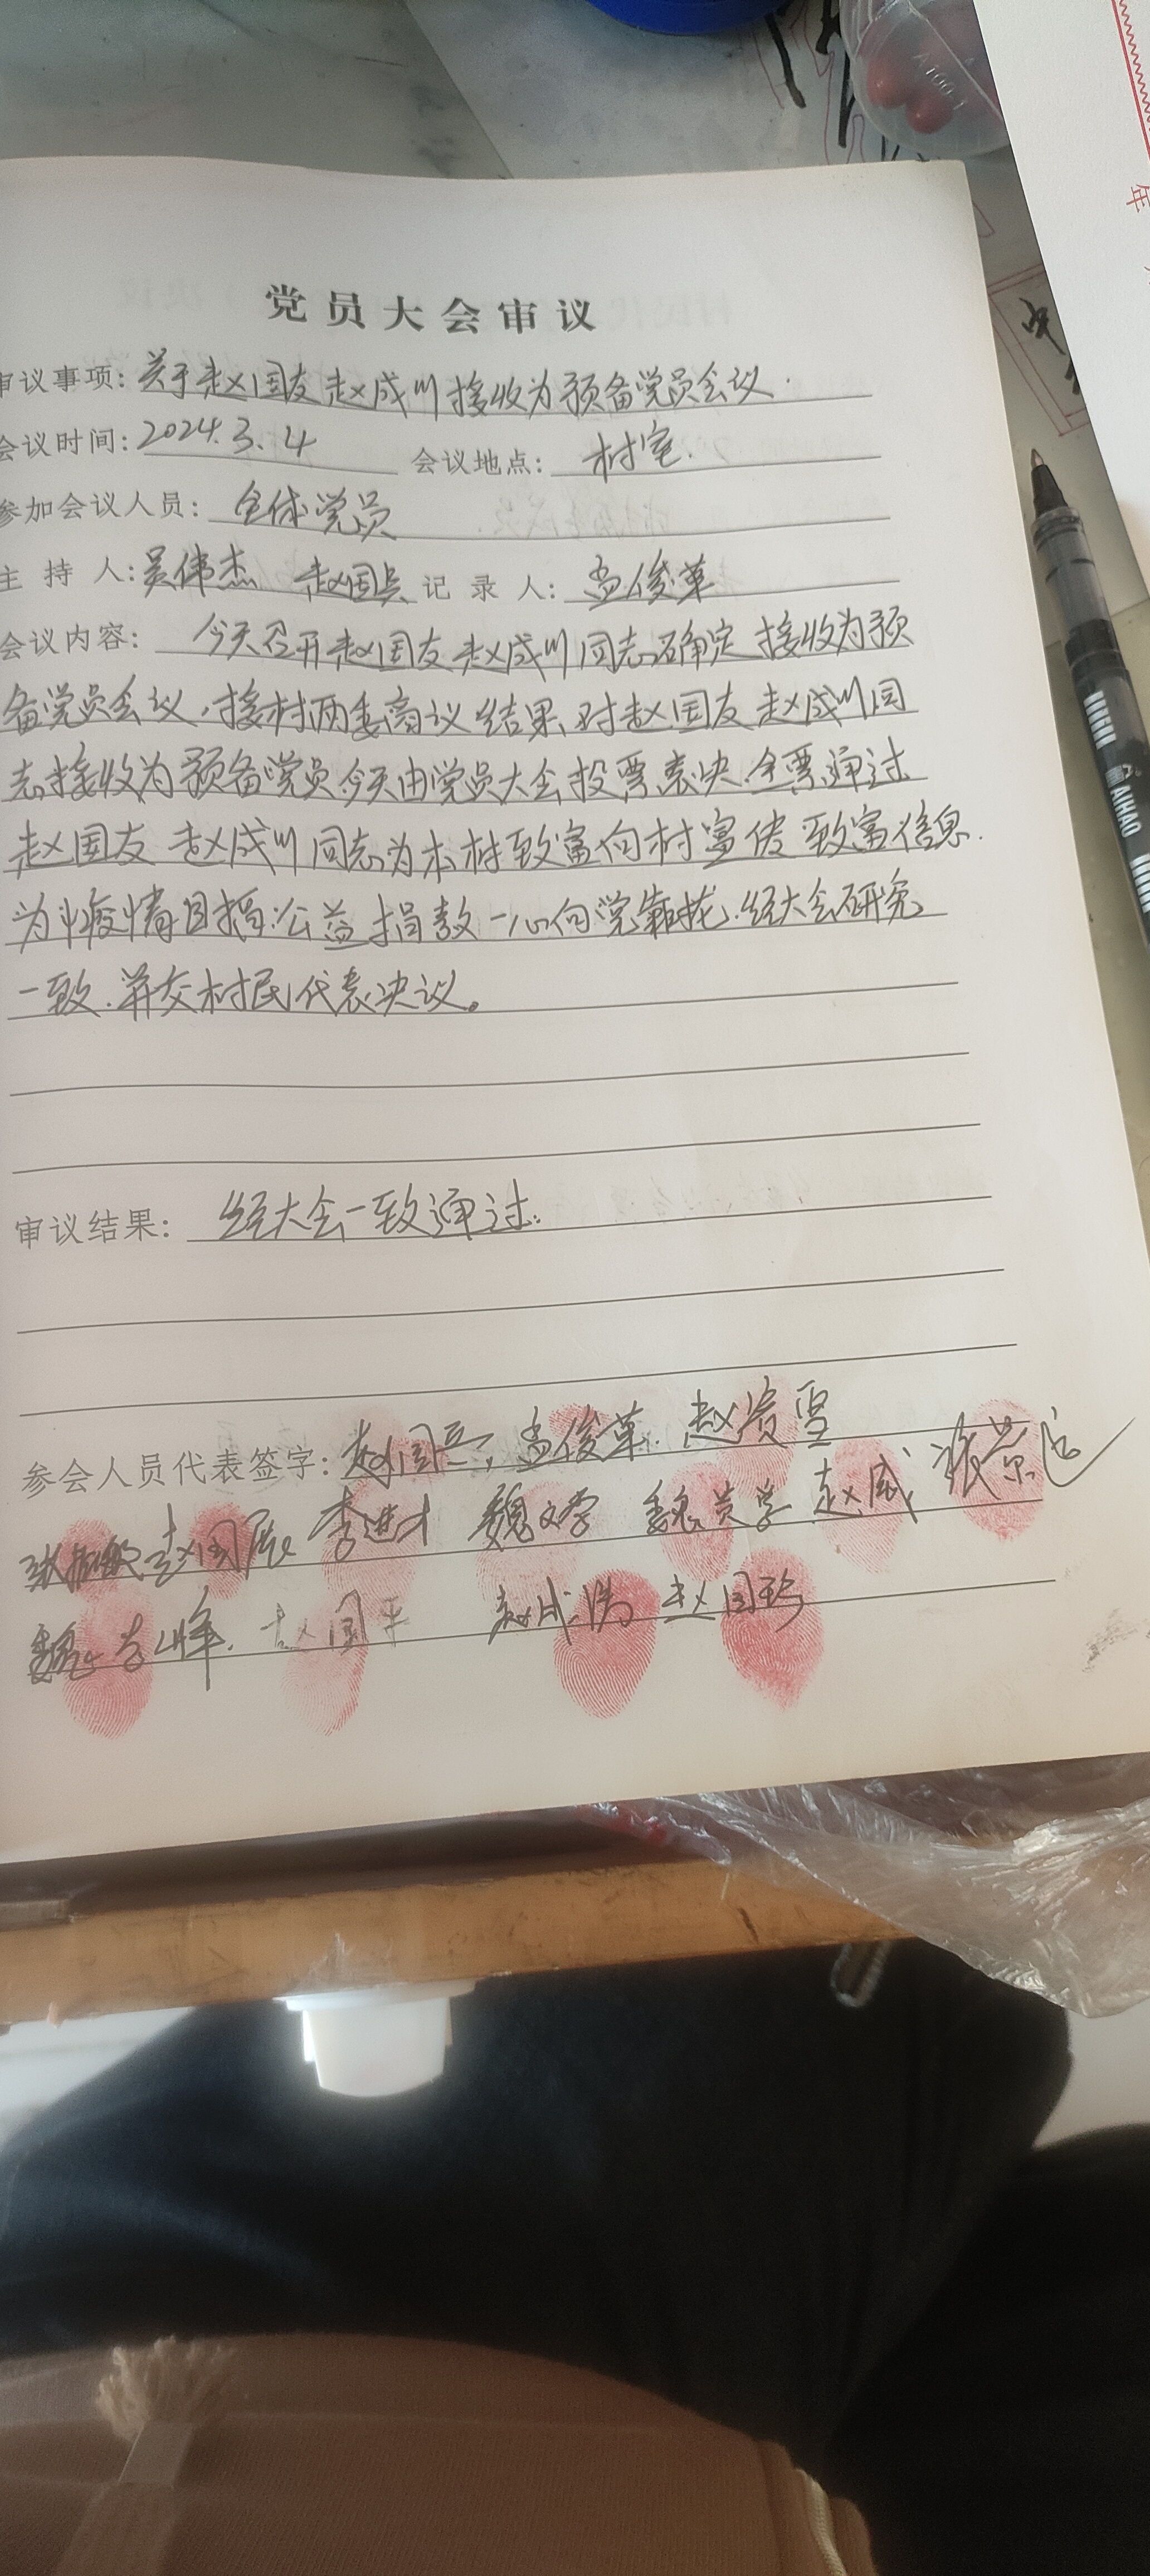 党员大会审议
审议事项：关于赵国友赵成川接收为预备党员会议.
会议时间：2024.3.4 会议地点：村室.
参加会议人员：全体党员
主持人：吴伟杰 赵国兵 记录人：孟俊革
会议内容：今天召开赵国友赵成川同志确定接收为预
备党员会议,接村两委商议结果,对赵国友赵成川同
志接收为预备党员今天由党员大会投票表决.全票通过
赵国友 赵成川同志为本村致富向村宣传致富信息.
为 疫情目捐公益捐款一心向党靠拢.经大会研究
一致.并交村民代表决议。
审议结果：经大会一致通过.
参会人员代表签字：赵国兵，孟俊革.赵 雪
赵国 李进才 魏文学 魏 学 赵威 张景
魏 峰. 赵国平 赵成 赵国珍
AIHAO
年